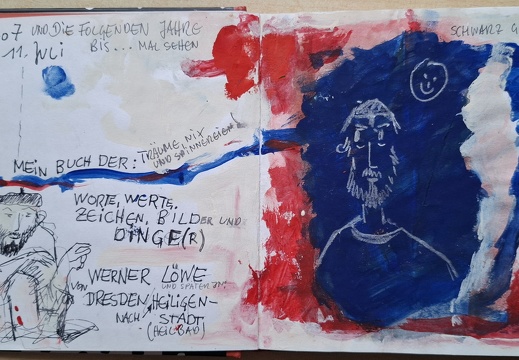 07 UND DIE FOLGENDEN JAHRE
11. JULI BIS... MAL SEHEN
MEIN BUCH DER: TRÄUME, NIX
UND SPINNEREIEN!
WORTE, WERTE,
ZEICHEN, BILDER UND
DINGE(R)
VON WERNER LÖWE
UND SPÄTER IN:
DRESDEN, HEILIGEN-
NACH STADT
(HEILBAD)
SCHWARZ G